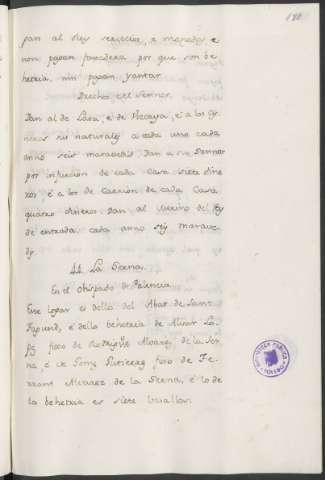 180
pan al Rey servicios, e monedas e
non pagan fonsadera por que son be
hetria, nin pagan yantar.
Derechos del Sennor.
Dan al de Lara, e de Vizcaya, e a los
sus naturales a cada uno cada
anno seis maravedis, dan a su Sennor
por infurcion de cada casa siete dine
ros, e a los de Carrion de cada casa
quatro dineros. dan al Merino del Rey
de entrada cada anno seis marave
dis.
44. La Serna.
En el Obispado de Palencia.
Este logar es dello del Abat de Sant
Fagund, e dello behetria de Alvar Lo
pez fijo de Rodrigo Alvarez de la Ser
na, e de Gomez Gutierrez fijo de Fe
rrant Alvarez de la Serna, e lo de
la behetria es siete vasallos.
BIBLIOTECA PUBLICA
TOLEDO